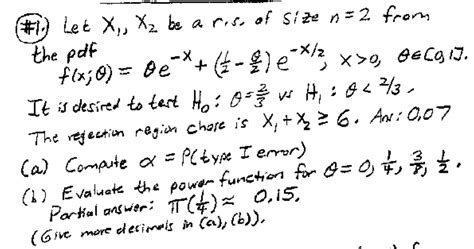 #1. Let X₁, X₂ be a r.s. of size n=2 from
the pdf
f(x;θ) = θe^{-x} + (1/2 - θ/2) e^{-x/2}, x>0, θ∈[0,1].
It is desired to test H₀: θ=2/3 vs H₁: θ<2/3.
The rejection region chose is X₁+X₂ ≥ 6. Ans: 0.07
(a) Compute α = P(type I error)
(b) Evaluate the power function for θ=0, 1/4, 3/8, 1/2.
Partial answer: π(1/4) ≈ 0.15.
(Give more decimals in (a), (b)).